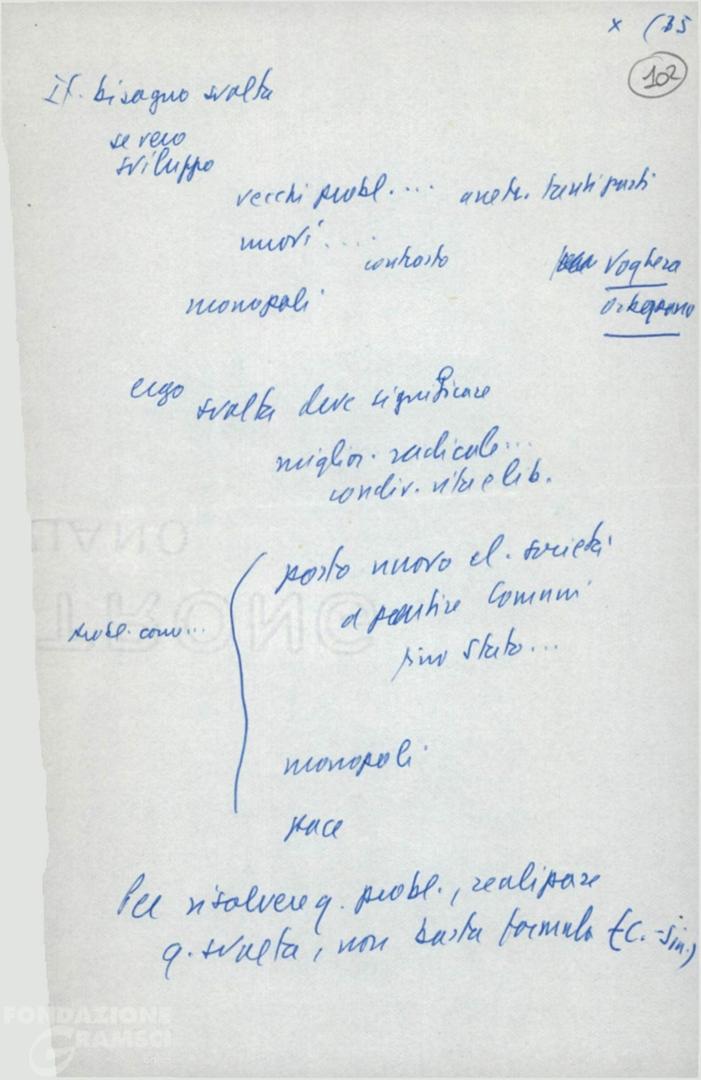 x (35
102
It. bisogno svolta
se vero
sviluppo
vecchi probl.... anetr. tanti posti
nuovi....
contrasto Voghera
monopoli
ergo svolta deve significare
miglior. radicale...
condiz. vita e lib.
posto nuovo cl. società
a partire Comuni
probl. come...
fino Stato...
monopoli
pace
Per risolvere q. probl., realizzare
q. svolta, non basta formula (C.-Sin.)
FONDAZIONE
GRAMSCI